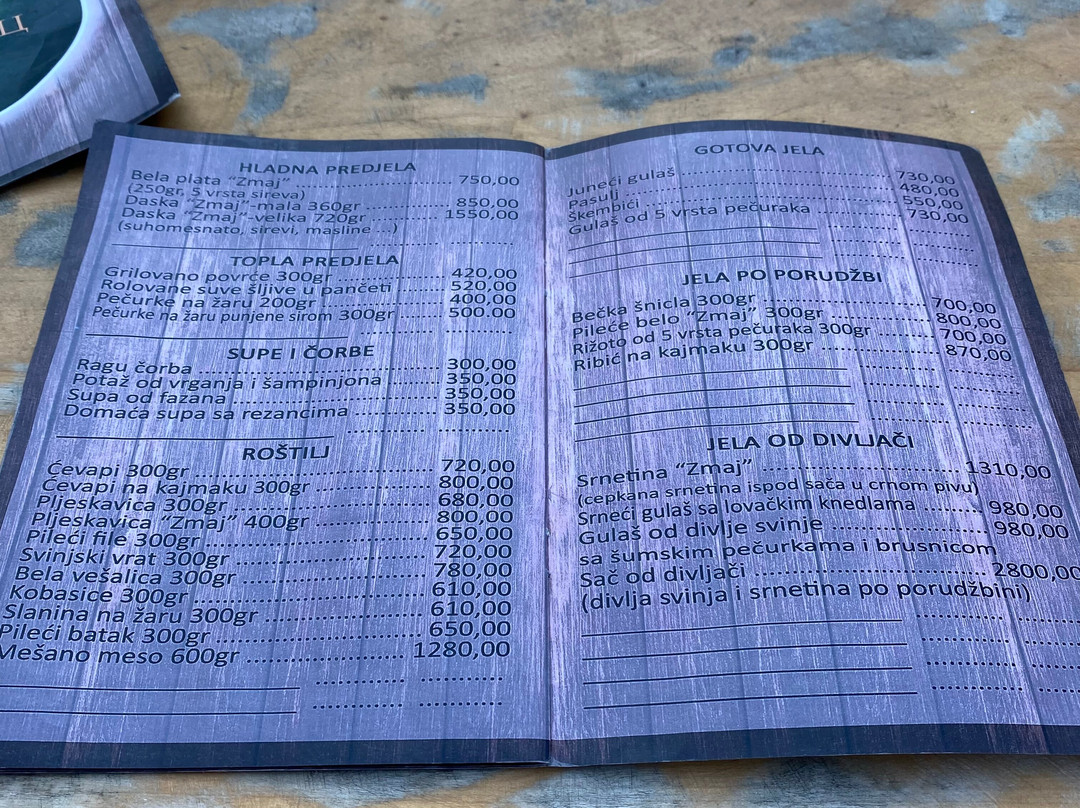 HLADNA PREDJELA
Bela plata "Zmaj" 750,00
(250gr, 5 vrsta sireva)
Daska "Zmaj"-mala 360gr 850,00
Daska "Zmaj"-velika 720gr 1550,00
(suhomesnato, sirevi, masline ...)
TOPLA PREDJELA
Grilovano povrće 300gr 420,00
Rolovane suve šljive u pančeti 520,00
Pečurke na žaru 200gr 400,00
Pečurke na žaru punjene sirom 300gr 500,00
SUPE I ČORBE
Ragu čorba 300,00
Potaž od vrganja i šampinjona 350,00
Supa od fazana 350,00
Domaća supa sa rezancima 350,00
ROŠTILJ
Ćevapi 300gr 720,00
Ćevapi na kajmaku 300gr 800,00
Pljeskavica 300gr 680,00
Pljeskavica "Zmaj" 400gr 800,00
Pileći file 300gr 650,00
Svinjski vrat 300gr 720,00
Bela vešalica 300gr 780,00
Kobasice 300gr 610,00
Slanina na žaru 300gr 610,00
Pileći batak 300gr 650,00
Mešano meso 600gr 1280,00
GOTOVA JELA
Juneći gulaš 730,00
Pasulj 480,00
Škembići 550,00
Gulaš od 5 vrsta pečuraka 730,00
JELA PO PORUDŽBI
Bečka šnicla 300gr 700,00
Pileće belo "Zmaj" 300gr 800,00
Rižoto od 5 vrsta pečuraka 300gr 700,00
Ribić na kajmaku 300gr 870,00
JELA OD DIVLJAČI
Srnetina "Zmaj" 1310,00
(cepkana srnetina ispod sača u crnom pivu)
Srneći gulaš sa lovačkim knedlama 980,00
Gulaš od divlje svinje 980,00
sa šumskim pečurkama i brusnicom
Sač od divljači 2800,00
(divlja svinja i srnetina po porudžbini)